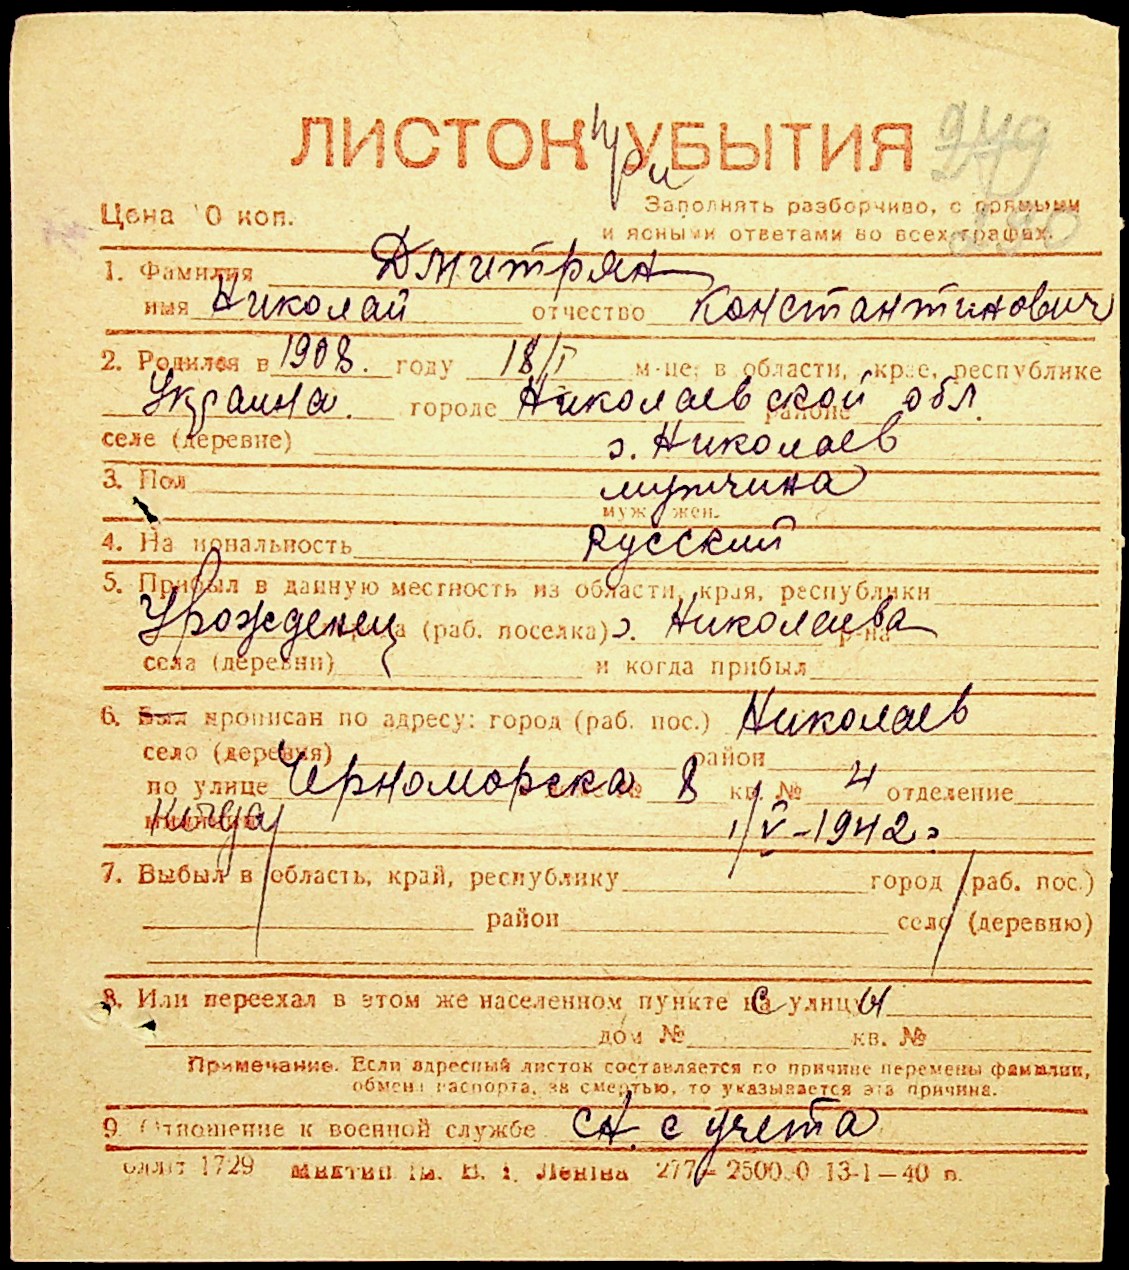 ЛИСТОК УБЫТИЯ
при
249
Цена 10 коп.
Заполнять разборчиво, с прямыми
и ясными ответами во всех графах.
1. Фамилия Дмитрян
имя Николай отчество Константинович
2. Родился в 1908. году 18/I м-це; в области, крае, республике
Украина. городе Николаевской обл. районе
селе (деревне) г. Николаев
3. Пол мужчина
муж. жен.
4. Национальность Русский
5. Прибыл в данную местность из области, края, республики
Урожденец города (раб. поселка) г. Николаева р-на
села (деревни) и когда прибыл
6. Был прописан по адресу: город (раб. пос.) Николаев
село (деревня) район
по улице Черноморска № 8 кв. № 4 отделение
милиции Когда 1/V-1942 г
7. Выбыл в область, край, республику город (раб. пос.)
район село (деревню)
8. Или переехал в этом же населенном пункте на с улицу ы
дом № кв. №
Примечание. Если адресный листок составляется по причине перемены фамилии,
обмена паспорта, за смертью, то указывается эта причина.
9. Отношение к военной службе сн. с учета
1729 им. В. І. Леніна 277 — 13-I—40 р.